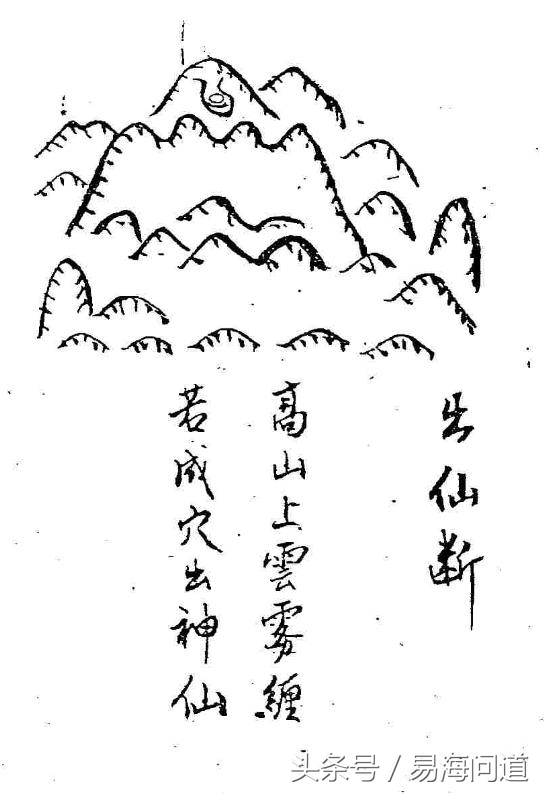 出仙断
高山上雲雾纏
若成穴出神仙
头条号 / 易海问道